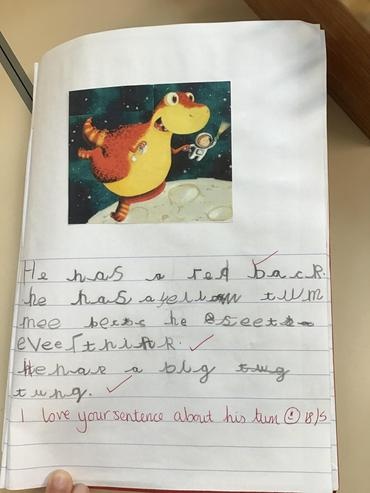 He has a red back.
he has a yellow tum
mee he eseets
eveerthink.
He has a big tug
tung.
I love your sentence about his tum